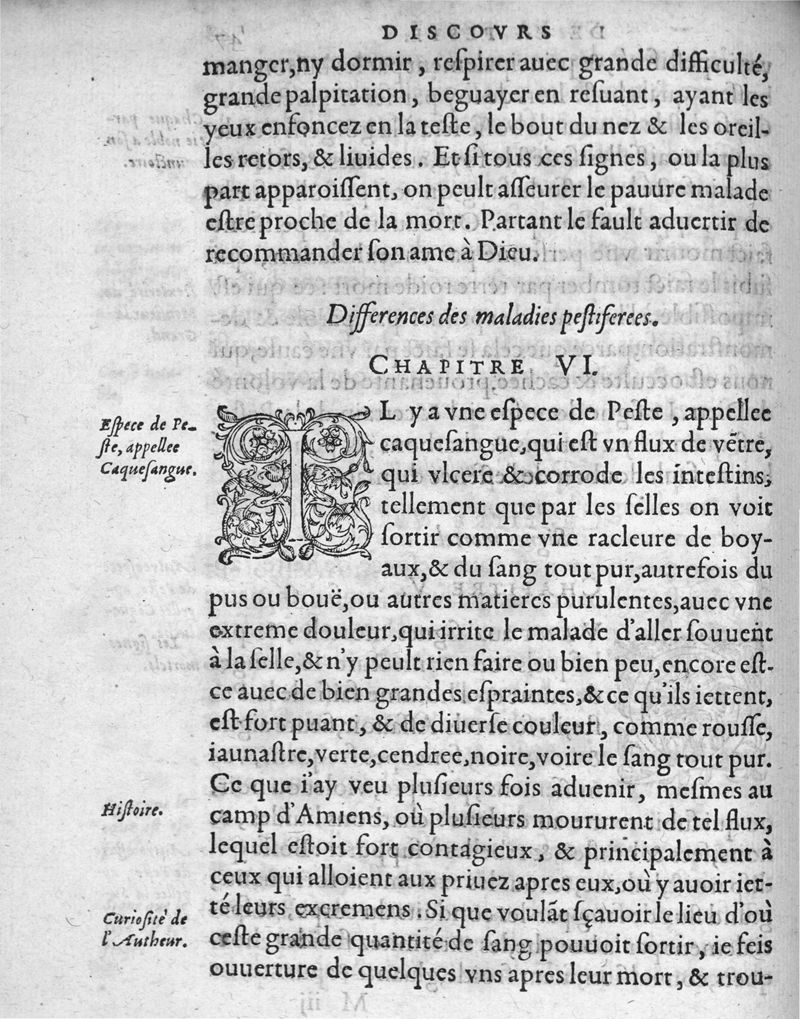 DISCOVRS
manger,ny dormir, reſpirer auec grande difficulté,
grande palpitation, beguayer en reſuant, ayant les
yeux enfoncez en la teſte, le bout du nez & les oreil-
les retors, & liuides. Et ſi tous ces ſignes, ou la plus
part apparoiſſent, on peult aſſeurer le pauure malade
eſtre proche de la mort. Partant le fault aduertir de
recommander ſon ame à Dieu.
Differences des maladies peſtiferees.
CHAPITRE VI.
Eſpece de Pe-
ſte, appellee
Caqueſangue.
IL y a vne eſpece de Peſte, appellee
caqueſangue, qui eſt vn flux de vẽtre,
qui vlcere & corrode les inteſtins,
tellement que par les ſelles on voit
ſortir comme vne racleure de boy-
aux, & du ſang tout pur, autrefois du
pus ou bouë, ou autres matieres purulentes, auec vne
extreme douleur, qui irrite le malade d'aller ſouuent
à la ſelle, & n'y peult rien faire ou bien peu, encore eſt-
ce auec de bien grandes eſpraintes, & ce qu'ils iettent,
eſt fort puant, & de diuerſe couleur, comme rouſſe,
iaunaſtre, verte, cendree, noire, voire le ſang tout pur.
Hiſtoire.
Ce que i'ay veu pluſieurs fois aduenir, meſmes au
camp d'Amiens, où pluſieurs moururent de tel flux,
lequel eſtoit fort contagieux, & principalement à
ceux qui alloient aux priuez apres eux, où y auoir iet-
Curioſité de
l'Autheur.
té leurs excremens. Si que voulãt ſçauoir le lieu d'où
ceſte grande quantité de ſang pouuoit ſortir, ie feis
ouuerture de quelques vns apres leur mort, & trou-